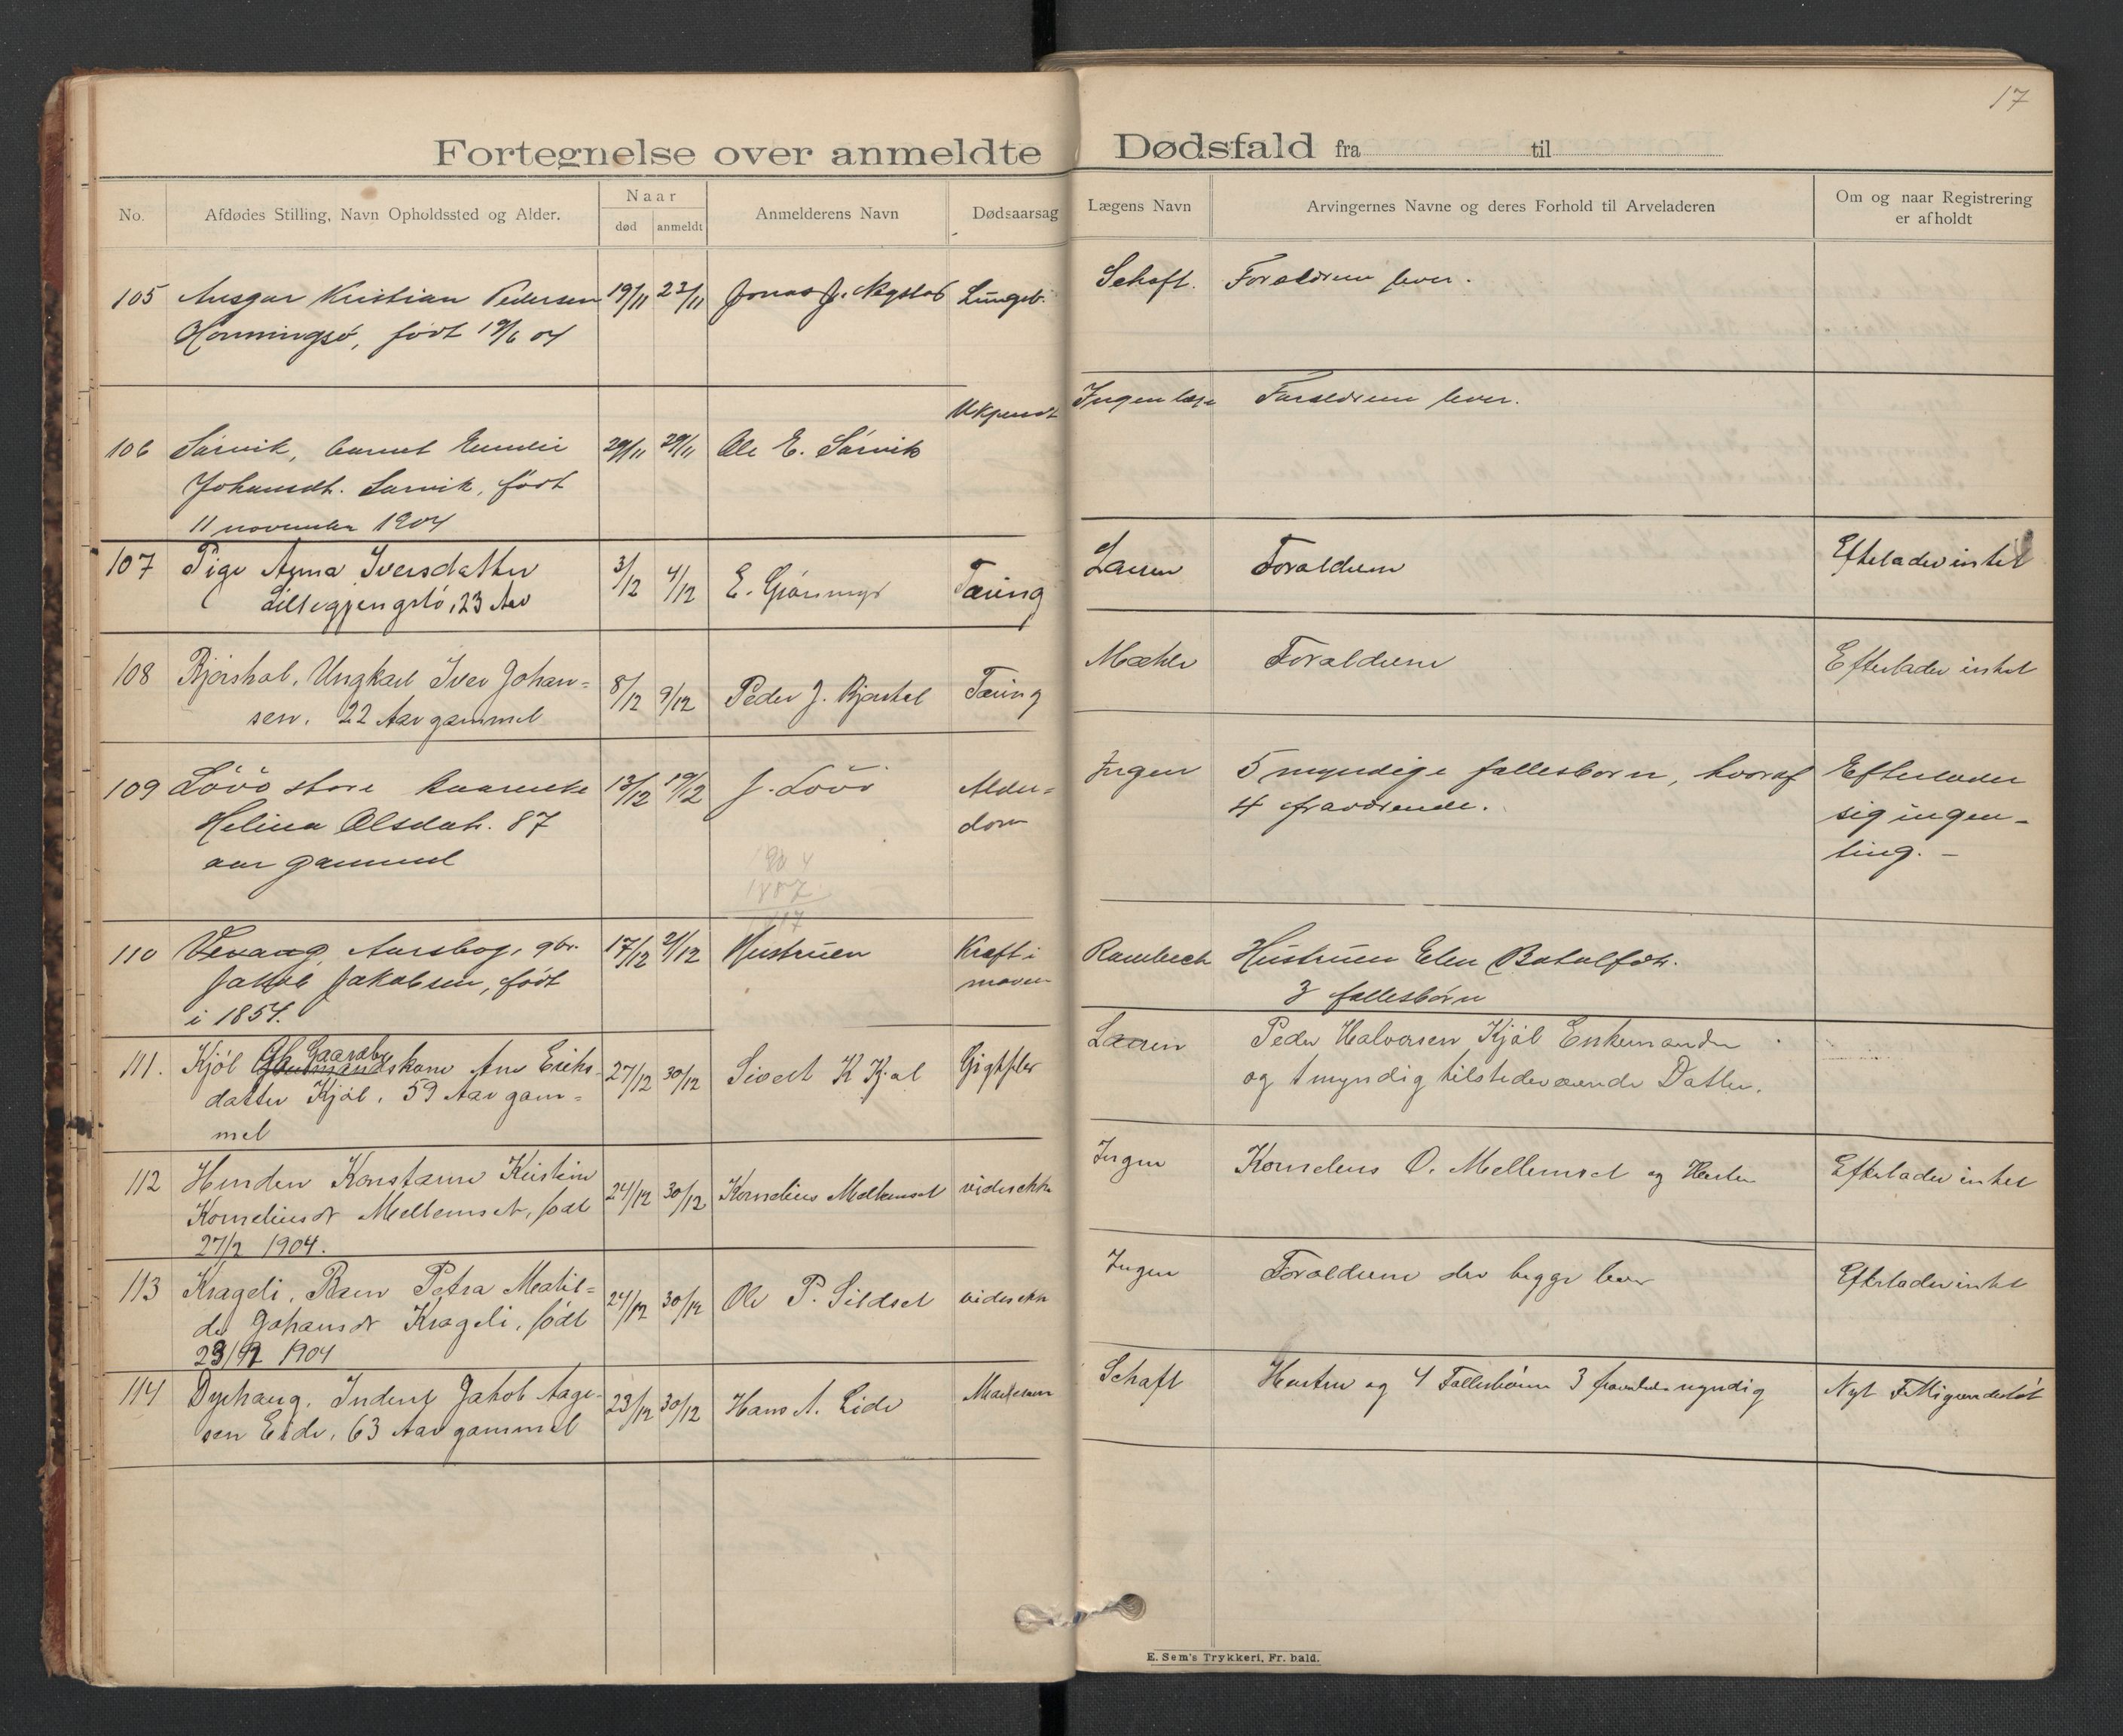 17
Fortegnelse over anmeldte Dødsfald fra til
No.
Afdødes Stilling, Navn Opholdssted og Alder.
Naar
død
anmeldt
Anmelderens Navn
Dødsaarsag
Lægens Navn
Arvingernes Navne og deres Forhold til Arveladeren
Om og naar Registrering
er afholdt
105 Ansgar Kristian Pedersen 19/11 23/11 Jonas J. Lungeb. Schaft. Forældrene lever.
Honningsø, født 19/6 04
Ukjendt Ingen læge Forældrene lever.
106 Sørvik, barnet 29/11 29/11 Ole E. Sørvik
Johansdt. Sørvik, født
11 november 1904
107 Pige Anna Iversdatter 3/12 4/12 E. Tæring Forældrene Efterlader intet
23 Aar
108 Bjørshol, Ungkarl Iver Johan= 8/12 9/12 Peder J. Tæring Mæhle Forældrene Efterlader intet
sen. 22 Aar gammel
109 Lövö store 13/12 19/12 J. Lövö Alder= Ingen 5 myndige fællesbørn, hvoraf Efterlader
Helina Olsdatr. 87 dom 4 fraværende. sig ingen-
aar gammel ting. -
110 Vevang, gbr. 17/12 21/12 Hustruen Kræft i Hustruen Elen
Jakob Jakobsen, født maven 3 fællesbørn
i 1854.
111. Kjøl Gaardbr
kone Ane Eriks- 27/12 30/12 Sivert K Kjøl Peder Halvorsen Kjøl Enkemanden
datter Kjøl, 59 Aar gam= og 1 myndig tilstedeværende Datter.
mel
112 Henden Konstanse Kristine 24/12 30/12 Kornelius Mellemset vides ikke Ingen Kornelius O. Mellemset og Hustru Efterlader intet
Korneliusdt Mellemset, født
27/2 1904.
113 Krageli, Barn Petra Matil= 24/12 30/12 Ole P. Sildset vides ikke Ingen Forældrene der begge lever Efterlader intet
de Johansdt Krageli, født
1904
114 Jakob Aage- 23/12 30/12 Hans A. Eide Schaft Hustru og 4 Fællesbørn 3 myndig
sen Eide, 63 Aar gammel
E. Sem's Trykkeri, Fr. hald.